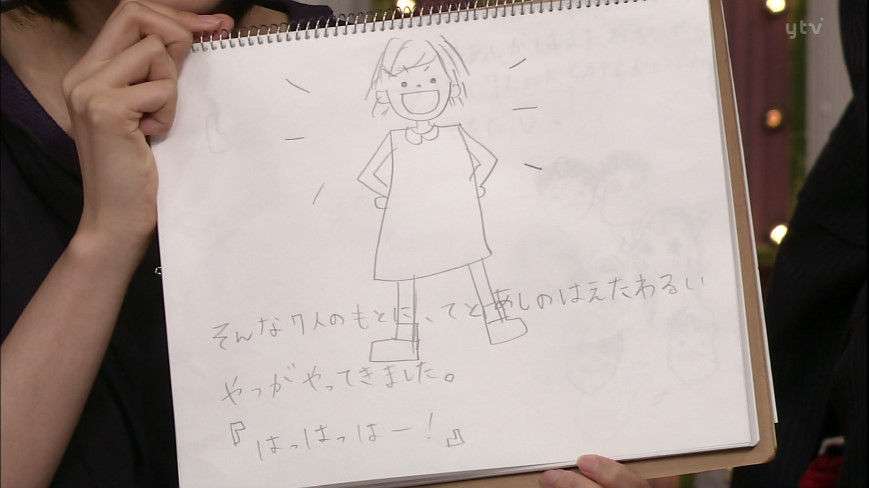 ytv
そんな7人のもとに、てと足しのはえたわるい
やつがやってきました。
『はっはっはー！』